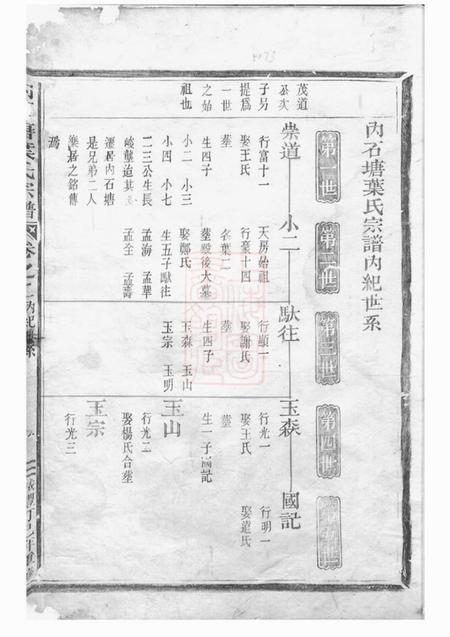 內石塘葉氏宗譜內紀世系
第一世
第二世
第三世
第四世
茂道
公次
子另
提爲
一世
之始
祖也
崇道
行富十一
娶王氏
葬
生四子
小二 小三
小四 小七
二三公生長
峻壟迫其
遷居內石塘
是兄弟二人
樂居之銘傳
焉
小二
天房始祖
行豪十四
名葉二
葬後大墓
娶鄭氏
生五子馱往
孟海 孟華
孟全 孟壽
馱往
行顯一
娶謝氏
葬
生四子
玉森 玉山
玉宗 玉明
玉森
行光一
娶王氏
葬
生一子國記
玉山
行光二
娶楊氏合葬
玉宗
行光三
國記
行明一
娶道氏
葉氏宗譜
卷之二內紀世系
咸豐丁巳年重修